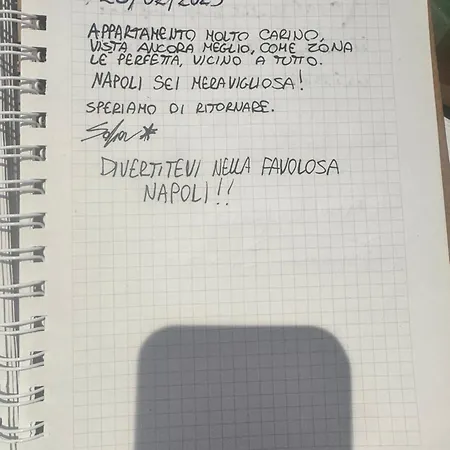 28/02/2023
APPARTAMENTO MOLTO CARINO,
VISTA ANCORA MEGLIO, COME ZONA
LE PERFETTA, VICINO A TUTTO.
NAPOLI SEI MERAVIGLIOSA!
SPERIAMO DI RITORNARE.
DIVERTITEVI NELLA FAVOLOSA
NAPOLI!!